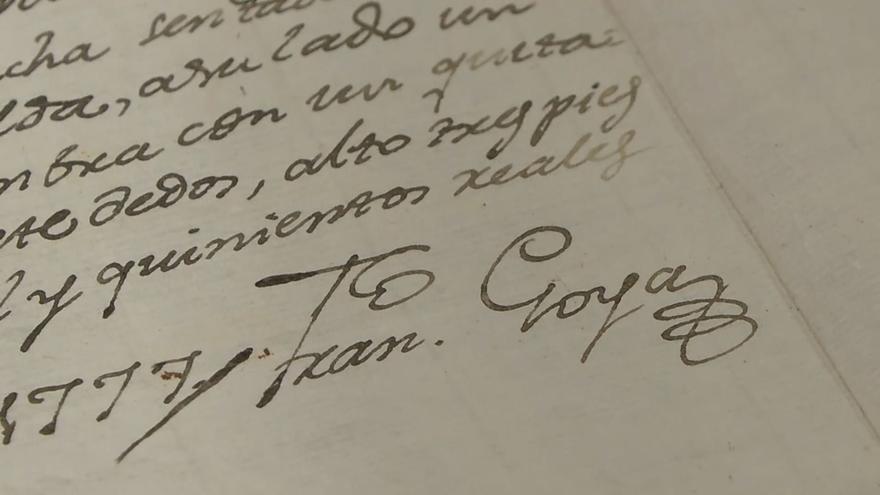 cha senta
lda, asu lado un
mbra con un quita
ete dedos, alto tres pies
l y quinientos reales
1777/ Fran.co Goya